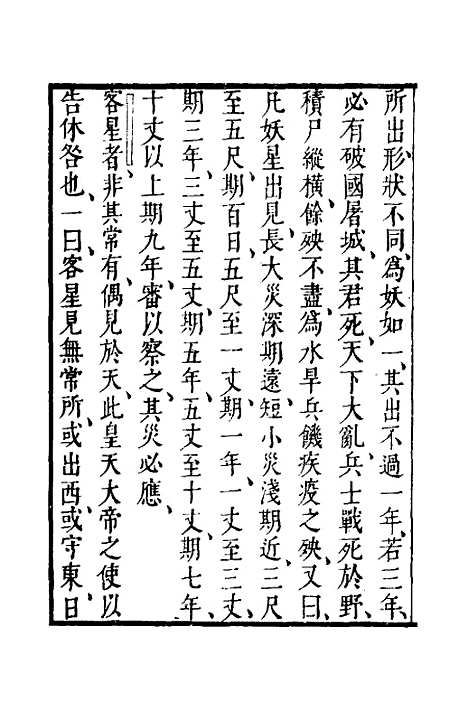 所出形狀不同、爲妖如一、其出不過一年、若三年、
必有破國屠城、其君死、天下大亂、兵士戰死於野、
積尸縱橫、餘殃不盡、爲水旱兵饑疾疫之殃、又曰、
凡妖星出見、長大災深期遠、短小災淺期近、三尺
至五尺、期百日、五尺至一丈、期一年、一丈至三丈、
期三年、三丈至五丈、期五年、五丈至十丈、期七年、
十丈以上期九年、審以察之、其災必應、
客星者、非其常有、偶見於天、此皇天大帝之使以
告休咎也、一曰客星見無常所、或出西、或守東、日